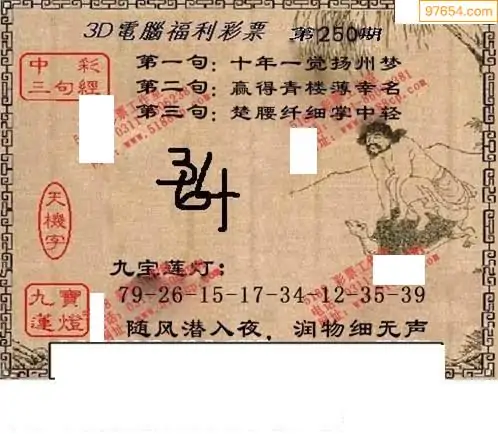 97654.com
3D電腦福利彩票 第250期
中彩三句經
第一句：十年一觉扬州梦
第二句：赢得青楼薄幸名
第三句：楚腰纤细掌中轻
天機字
九宝莲灯：
79-26-15-17-34 12-35-39
九寶蓮燈
随风潜入夜，润物细无声